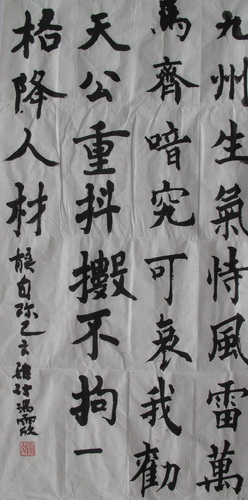 九州生氣恃風雷萬
馬齊喑究可哀我勸
天公重抖擻不拘一
格降人材